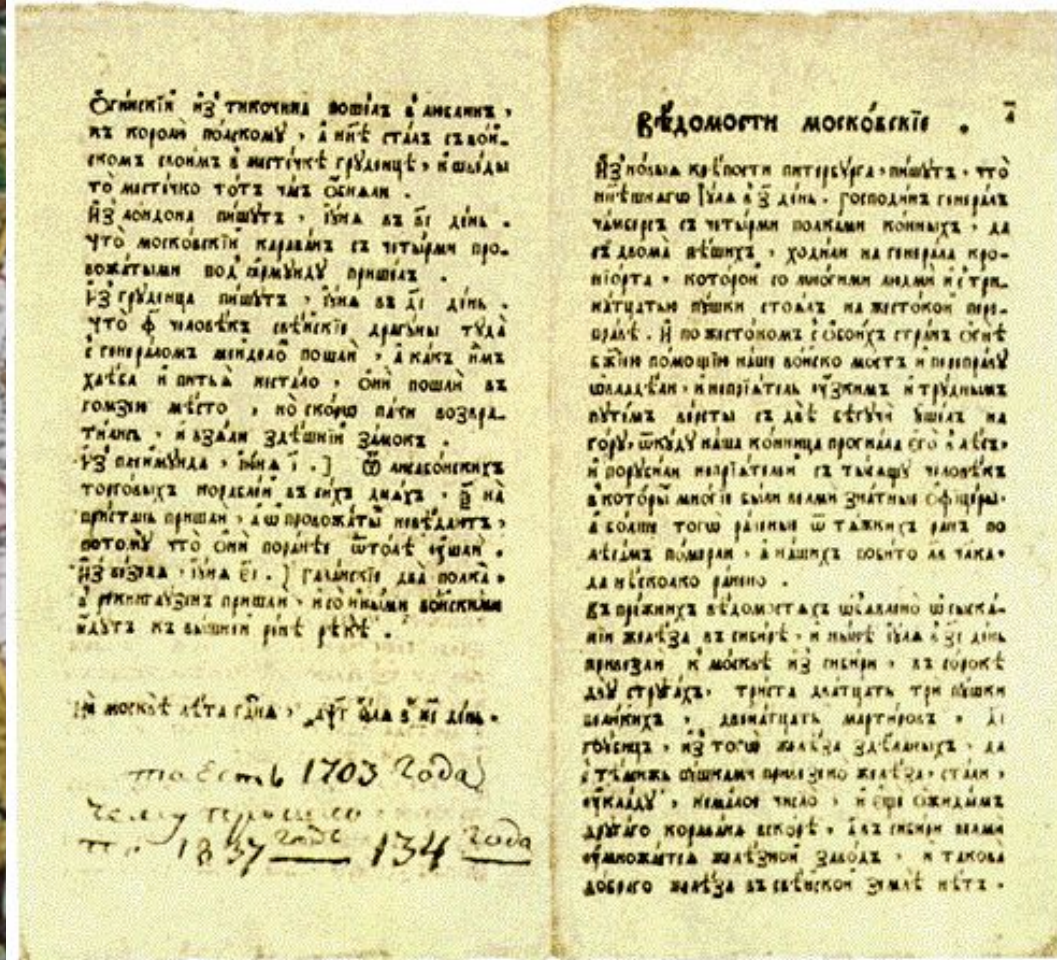 Ѻгинскїи из̾ тикочина пошелъ в̾ люблинъ,
къ королю полскому, а ннѣ сталъ съвои-
скомъ своимъ в̾ местечкѣ груденцѣ, и шведы
то местечко тотъ часъ ѻбняли.
Из̾ лондона пишутъ, їуня въ в҃і день.
что московскїи караванъ съ четырми про-
вожатыми под̾ ярмунду пришелъ.
Из̾ груденца пишутъ, їуня въ д҃і день.
Что ф҃ человѣкъ свѣискїе драгуны туда
с генераломъ меиделѡ пошли, а какъ имъ
хлѣба и питья нестало, ѻни пошли въ
гомзин мѣсто, но скорѡ паки возвра-
тились, и взяли здѣшнїи замокъ.
Из̾ пленмунда, їюня і҃.] Ѿ лисабонскихъ
торговыхъ кораблеи въ сихъ дняхъ, на
пристань пришли, а ѡ провожаты невѣдаютъ,
потому что ѻни поранѣе ѿтолѣ ушли.
Из̾ везеля, їуня є҃і.] галанскїе два полка,
в̾ рекингаузенъ пришли, исоиными воисками
идутъ къ вышнеи реинѣ рѣкѣ.
На москвѣ лѣта гдня, ҂аѱг҃ їуля в̾ день.
то есть 1703 года
чему прошло
1837 годѣ 134 года
Вѣдомости московскїе. а҃
Из̾ новыя крѣпости питербурга, пишутъ, что
ннѣшнягѡ їуля в̾ з҃ день. господинъ генералъ
чамберсъ съ четырми полками конныхъ, да
съ двома пѣшихъ, ходили на генерала кро-
нїорта, которои со многими людми и стри-
натцатью пушки стоялъ на жестокои пере-
правѣ. И по жестокомъ с̾ ѻбоихъ странъ ѻгнѣ
бжїею помощїю наше воиско мостъ и переправу
ѡвладѣли, и непрїятель узкимъ и труднымъ
путемъ версты съ двѣ бѣгучи ушелъ на
гору, ѿкуду наша конница прогнала єго в̾ лѣсъ,
и порубили непрїятелеи съ тысящу человѣкъ
в̾ которы многїе были велми знатные ѻфицеры,
а болши тогѡ раненые ѿ тяжкихъ ранъ по
лѣсамъ померли, а нашихъ побито
да нѣсколко ранено.
Въ прежнихъ вѣдомостяхъ ѡбявлено ѡ сыска-
нїи желѣза въ сибирѣ, и нынѣ їуля в̾ з҃і день
привезли к̾ москвѣ из̾ сибири, въ сорокѣ
дву стругахъ, триста дватцать три пушки
великихъ, двенатцать мартировъ, д҃і
гоубицъ, из̾ тогѡ желѣза здѣланыхъ, да
с̾ тѣмижъ пушками привезено желѣза, стали,
укладу, немалое число, и еще ѻжидаемъ
другаго каравана вскорѣ, а въ сибири велми
умножается желѣзнои заводъ, и такова
доброго желѣза въ свѣискои землѣ нѣтъ.